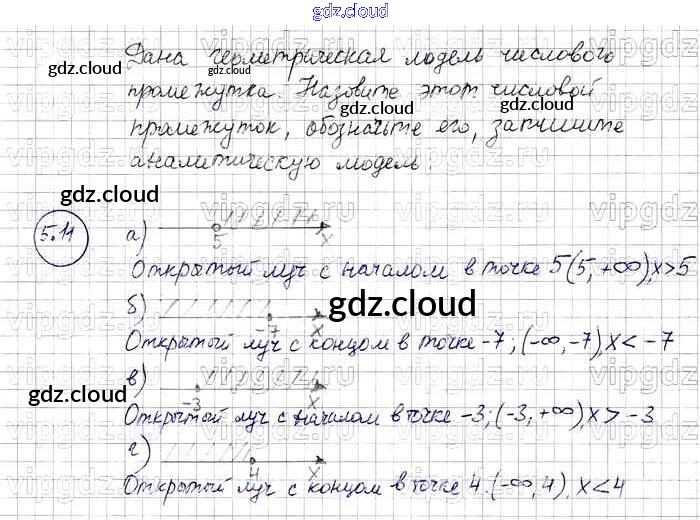 gdz.cloud
Дана геометрическая модель числового
gdz.cloud gdz.cloud
промежутка. Назовите этот числовой
gdz.cloud
промежуток, обозначьте его, запишите
аналитическую модель.
gdz.cloud
5.11 а) 5 x
Открытый луч с началом в точке 5 (5, +∞), x>5
б) -7 x
gdz.cloud
Открытый луч с концом в точке -7; (-∞, -7), x < -7
в) -3 x
gdz.cloud
Открытый луч с началом в точке -3; (-3, +∞), x > -3
г) 4 x
Открытый луч с концом в точке 4. (-∞, 4), x < 4
gdz.cloud
vipgdz.ru